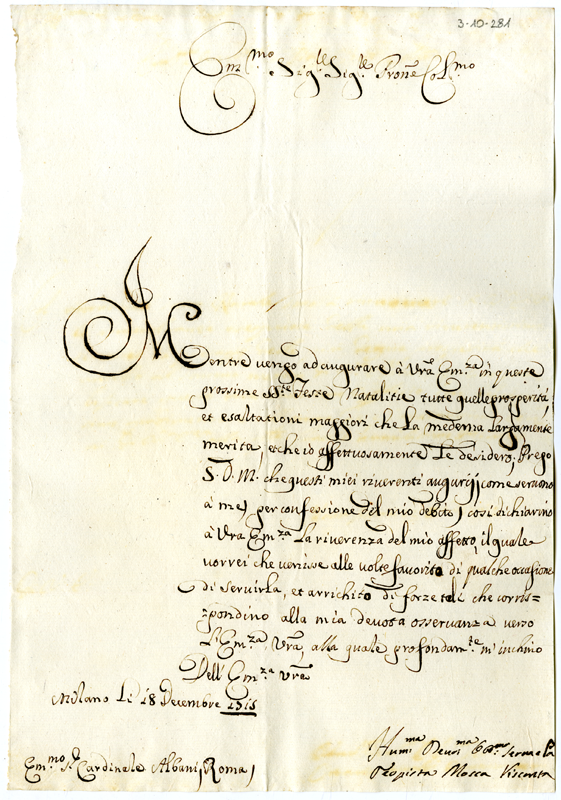 3-10-281
Em.mo Sig.re Sig.re Prone Col.mo
Mentre vengo ad augurare à Vra Em.za in queste
prossime SS.te Feste Natalitie tutte quelle prosperità,
et esaltationi maggiori che La medema Largamente
merita, et che io affettuosamente Le desidero, Prego
S. D. M. che questi miei riverenti augurij, come servono
à me, per confessione del mio debito, così dichiarino
à Vra Em.za La riverenza del mio affetto, il quale
vorrei che venisse alle volte favorito di qualche occasione
di servirla, et arrichito di forze tali che corris=
=pondino alla mia devota osservanza verso
l'Em.za Vra, alla quale profondam.te m'inchino
Dell'Em.za Vra
Milano Li 18 Decembre
Hum.ma Devot.ma
Em.mo Sr Cardinale Albani, Roma,
Mosca Visconta